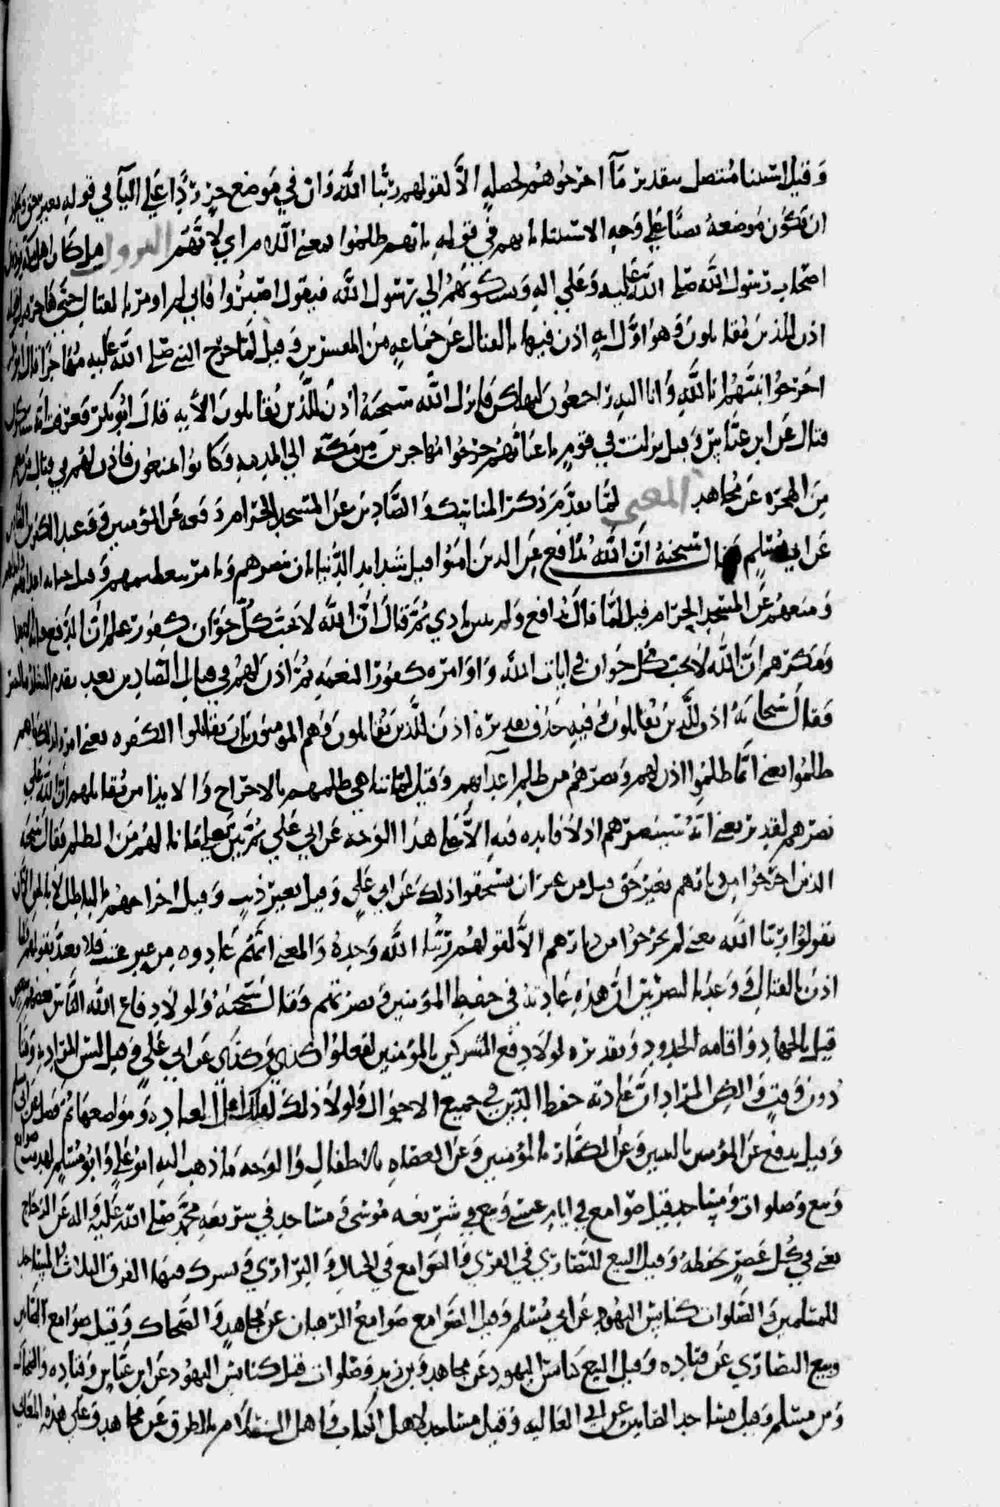 وقيل استثنا متصل بتقدير ما اخرجوهم لخصلة الا لقولهم ربنا الله وان في موضع جر ردا على البآ في قوله بغير حق ويجوز
ان تكون موضعه نصبا على وجه الاستثناء بانهم في قوله بانهم ظلموا بمعنى اللام اي لانهم النزول قيل كان اهل مكة يؤذون
اصحاب رسول الله صلى الله عليه وعلى اله ويشكونهم الى رسول الله فيقول اصبروا فاني لم اومر بالقتال حتى هاجر فانزل الله
اذن للذين يقاتلون وهو اول اية اذن فيها بالقتال عن جماعة من المفسرين وقيل لما خرج النبي صلى الله عليه مهاجرا قال ابو بكر
اخرجوا نبيهم انا لله وانا اليه راجعون ليهلكن فانزل الله سبحنه اذن للذين يقاتلون الاية قال ابو بكر فعرفت انه سيكون
قتال عن ابن عباس وقيل نزلت في قوم باعيانهم خرجوا مهاجرين من مكة الى المدينة وكانوا يمنعون فاذن لهم في قتال من منعهم
من الهجرة عن مجاهد المعنى لما تقدم ذكر المناسك والصادين عن المسجد الحرام دفعه عن المؤمنين
عن ابي مسلم فقال سبحنه ان الله يدافع عن الذين امنوا قيل شدايد الدنيا بان ينصرهم ويامر بتعظيمهم وقيل
ومنعهم عن المسجد الحرام قيل لما قال يدافع ولم يبين باذي ثم قال ان الله لا يحب كل خوان كفور علم ان الدفع
ومكرهم ان الله لا يحب كل خوان في ايات الله واوامره كفور النعمة ثم اذن لهم في قتال الصادين بعد تقدم
فقال سبحانه اذن للذين يقاتلون فيه حذف تقديره اذن للذين يقاتلون وهم المؤمنون بان يقاتلوا الكفره يعني
ظلموا يعني لما ظلموا اذن لهم ونصرهم من ظلم اعدآيهم وقيل لما تناهى ظلمهم بالاخراج والايذا من يقاتلهم وان الله على
نصرهم لقدير يعني انه سينصرهم اذ لا فايده فيه الا على هذا الوجه عن ابي علي ثم بين تعالى ما نالهم من الظلم فقال سبحنه
الذين اخرجوا من ديارهم بغير حق قيل من غير ان يستحقوا ذلك عن ابي علي وقيل بغير ذنب وقيل اخراجهم بالباطل لا بالحق الا ان
يقولوا ربنا الله يعني لم يخرجوا من ديارهم الا لقولهم ربنا الله وحده والمعنى انهم عادوه من غير عنت فلا يعد بقولهم
اذن بالقتال ووعد بالنصر بين ان هذه عادته في حفظ المؤمنين ونصرتهم وقال سبحنه ولولا دفاع الله الناس بعضهم ببعض
قيل بالجهاد واقامة الحدود وتقديره لولا دفع المشركين بالمؤمنين لفعلوا كذي وكذي عن ابي علي وقيل ليس المراد به وقتا
دون وقت ولكن المراد ان عادته حفظ الدين في جميع الاحوال ولولا ذلك لهلك اهل العباده ومواضعها ثم فصل
وقيل يدفع عن المؤمنين بالنبيين وعن الكفار بالمؤمنين وعن العصاه بالاطفال والوجه ما ذهب اليه ابو علي وابو مسلم لهدمت صوامع
وبيع وصلوات ومساجد قيل صوامع في ايام عيسى وبيع في شريعة موسى ومساجد في شريعة محمد صلى الله عليه واله عن الزجاج
يعني في كل عصر يحفظه وقيل البيع للنصارى في القرى والصوامع في الجبال والبراري ويشترك فيها الفرق الثلاث والمساجد
للمسلمين والصلوات كنايس اليهود عن ابي مسلم وقيل الصوامع صوامع الرهبان عن مجاهد والضحاك وقيل صوامع الصابين
وبيع النصارى عن قتاده وقيل البيع كنايس اليهود عن مجاهد وبن زيد وصلوات قيل كنايس اليهود عن ابن عباس وقتاده والضحاك
وبن مسلم وقيل مساجد الصابين عن ابي العاليه وقيل مساجد لاهل الكتاب واهل الاسلام بالطرق عن مجاهد وعلى هذه المعاني